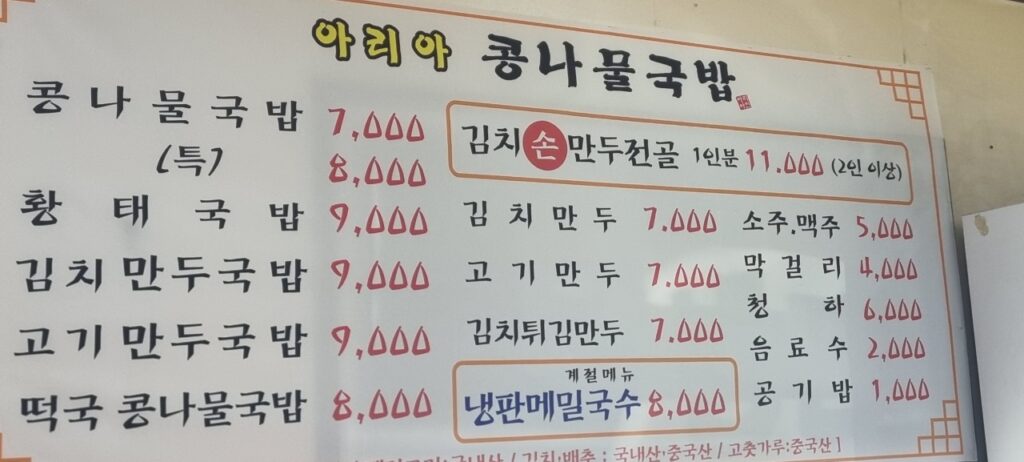 아리아 콩나물국밥
콩나물국밥 7,000
(특) 8,000
황태국밥 9,000
김치만두국밥 9,000
고기만두국밥 9,000
떡국 콩나물국밥 8,000
김치손만두전골 1인분 11.000 (2인 이상)
김치만두 7.000
고기만두 7.000
김치튀김만두 7.000
계절메뉴
냉판메밀국수 8,000
소주.맥주 5,000
막걸리 4,000
청하 6,000
음료수 2,000
공기밥 1,000
국내산 / 김치·배추 : 국내산·중국산 / 고춧가루:중국산 ]